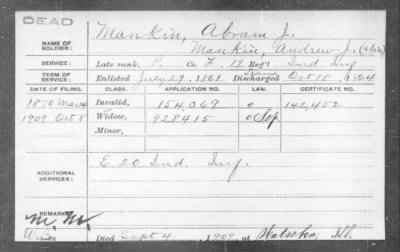 DEAD
NAME OF SOLDIER: Mankin, Abram J.
Mankin, Andrew J. (alias)
SERVICE: Late rank, P. Co. F, 12 Reg't Ind Inf
TERM OF SERVICE: Enlisted July 29, 1861 Discharged Oct 18, 1864
DATE OF FILING. CLASS. APPLICATION NO. LAW. CERTIFICATE NO.
1870 Mar 14 Invalid, 154,069 o 142,452
1909 Oct 8 Widow, 928415 o Sep
Minor,
ADDITIONAL SERVICES: E 20 Ind. Inf.
REMARKS:
M. M.
Died Sept 4, 1909, at Watseka, Ill.